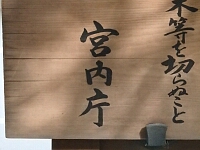 木等を切らぬこと
宮内庁